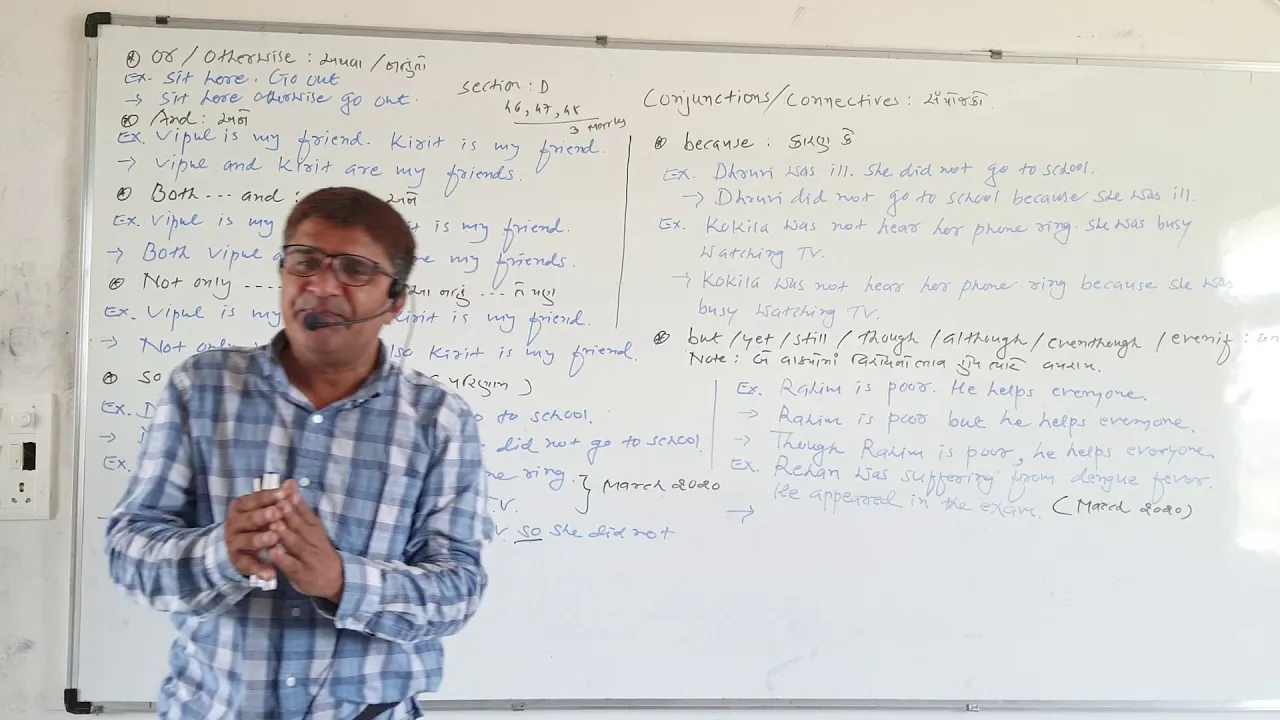 or / otherwise : અથવા / નહિંતો
Ex. Sit here. Go out
→ Sit here otherwise go out.
And : અને
Ex. Vipul is my friend. Kirit is my friend.
→ Vipul and Kirit are my friends.
Both --- and : અને
Ex. Vipul is my is my friend.
→ Both Vipul my friends.
Not only ---- નહિં ... તે પણ
Ex. Vipul is my Kirit is my friend.
→ Not only Kirit is my friend.
so (પરિણામ)
Ex. to school.
→ did not go to school.
Ex. ring. } March 2020
TV.
so she did not
Section : D
46, 47, 48
3 marks
Conjunctions/Connectives : સંયોજકો
because : કારણ કે
Ex. Dhruvi was ill. She did not go to school.
→ Dhruvi did not go to school because she was ill.
Ex. Kokila was not hear her phone ring. She was busy
watching TV.
→ Kokila was not hear her phone ring because she was
busy watching TV.
but / yet / still / though / although / eventhough / evenif :
Note : બે વાક્યોમાં વિરોધનો ભાવ હોય ત્યારે વપરાય.
Ex. Rahim is poor. He helps everyone.
→ Rahim is poor but he helps everyone.
→ Though Rahim is poor, he helps everyone.
Ex. Rehan was suffering from dengue fever.
He appeared in the exam. (March 2020)
→